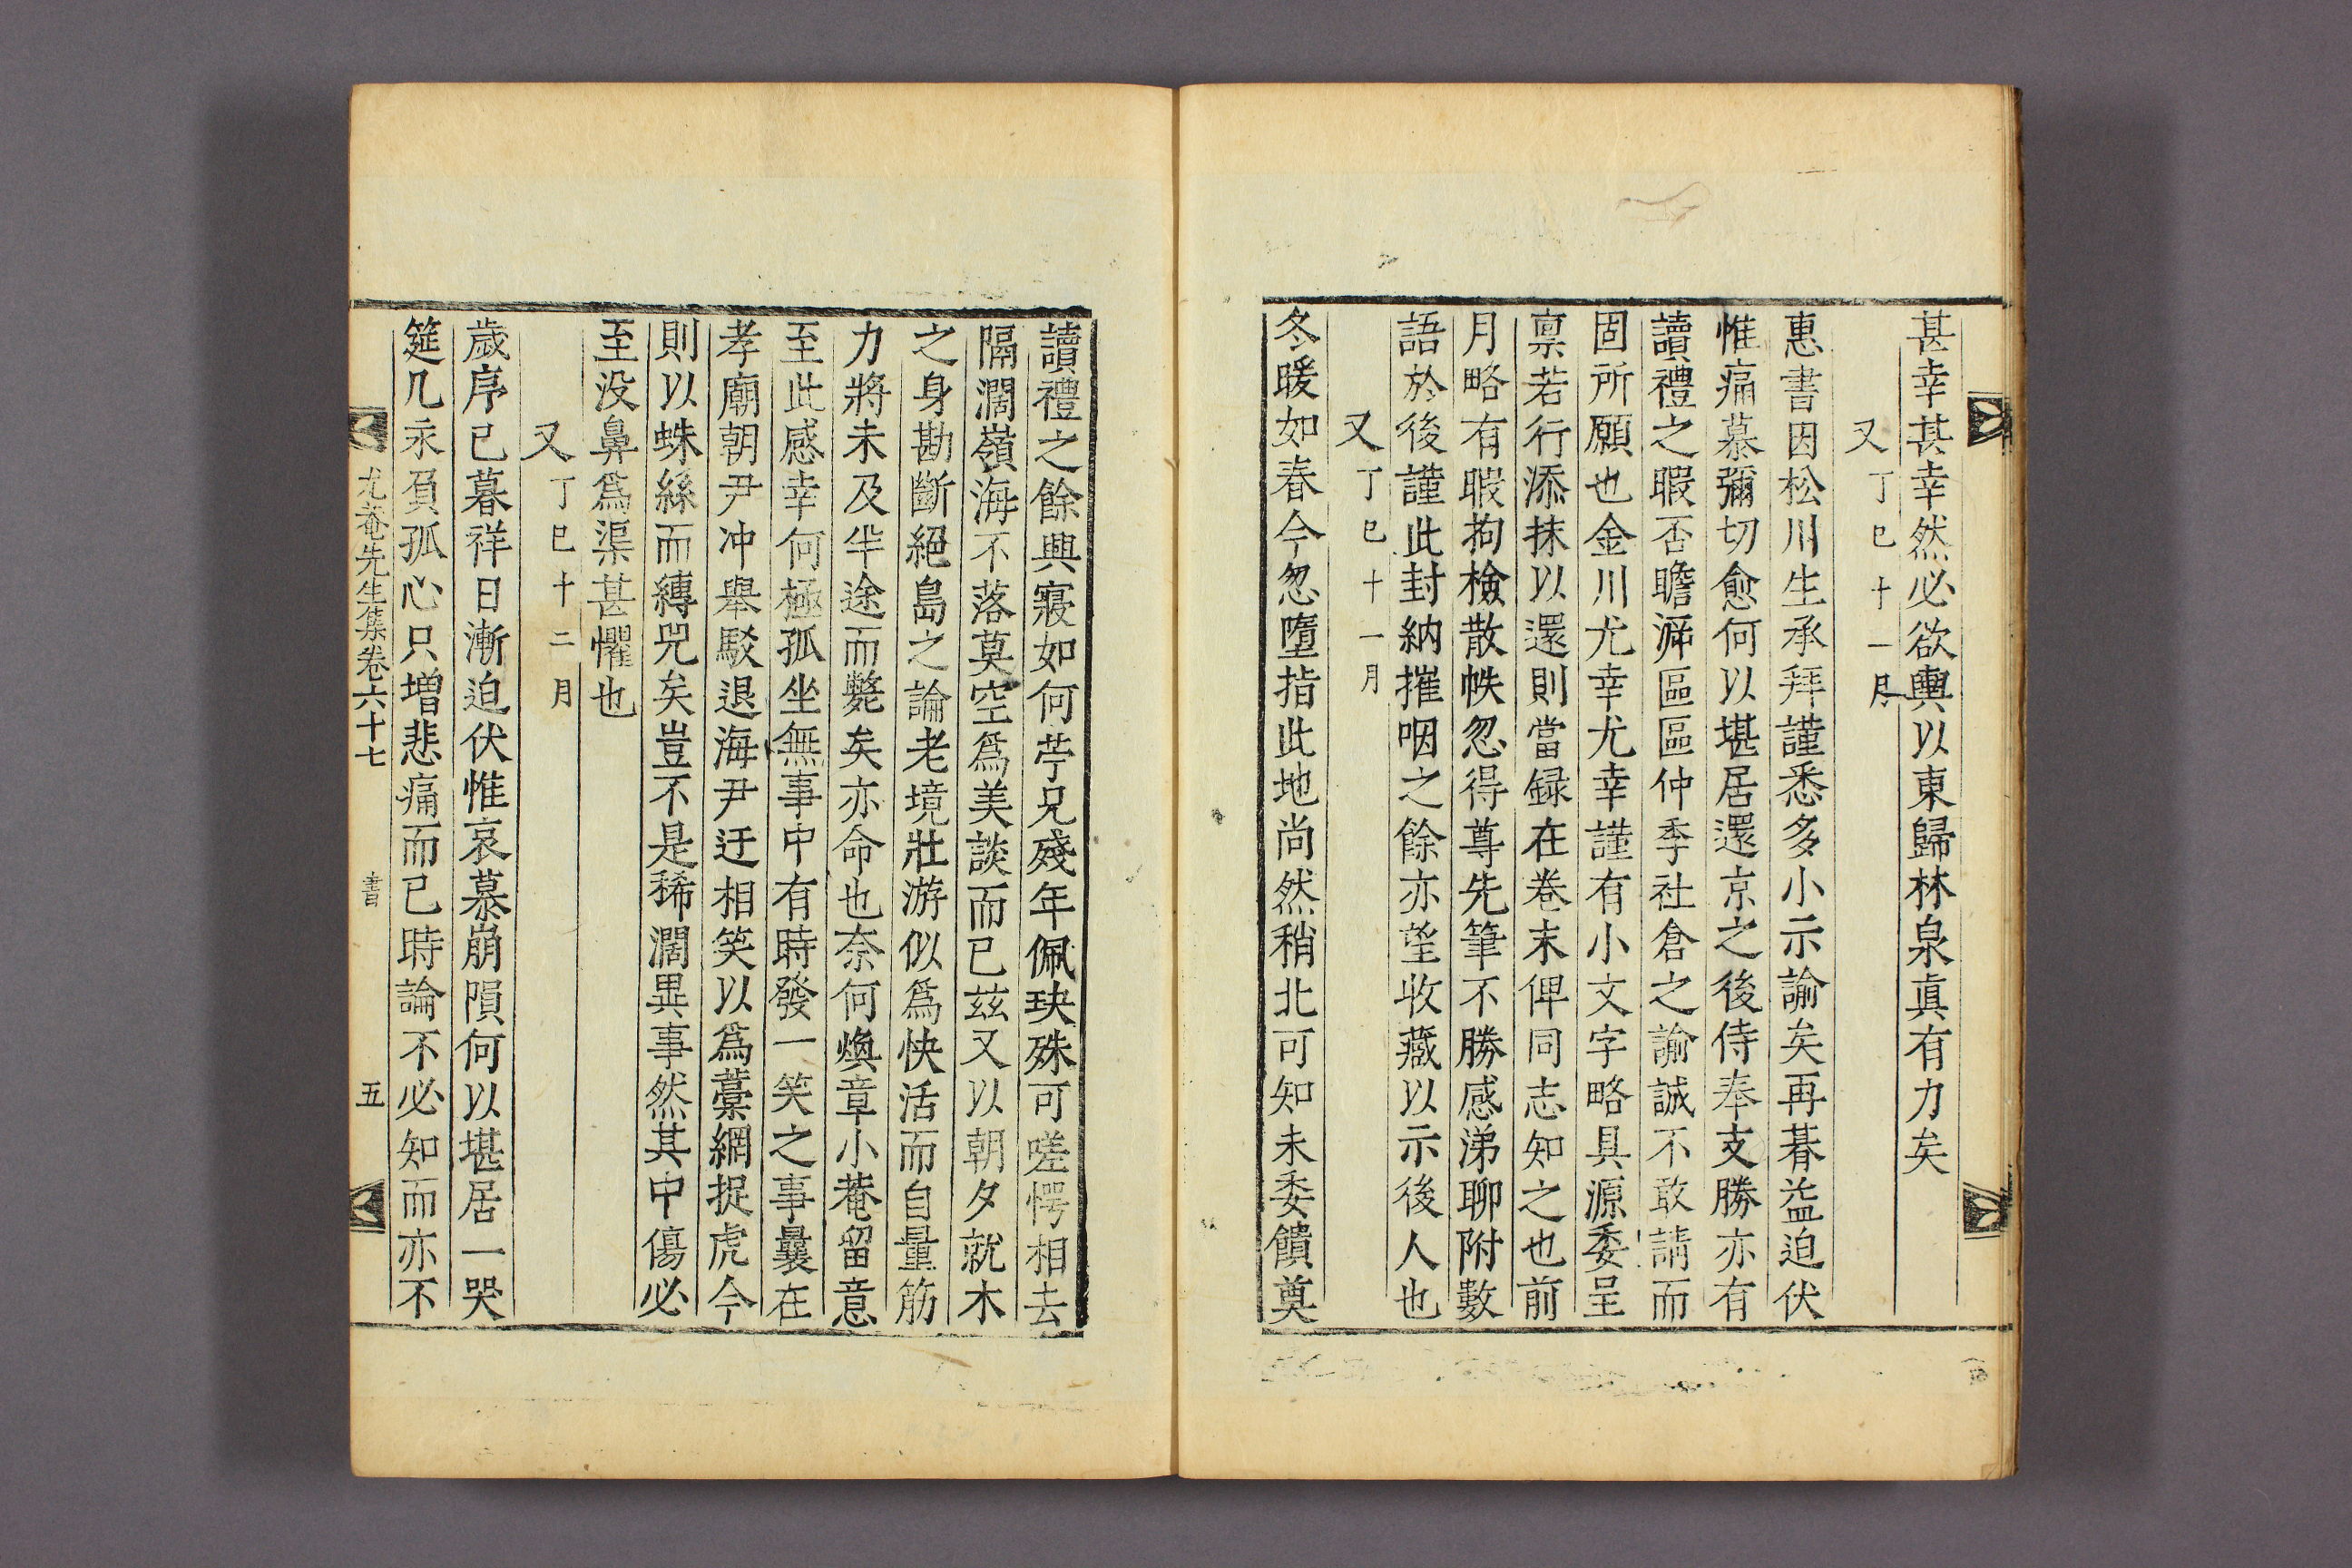 甚幸甚幸然必欲輿以東歸林泉眞有力矣
又丁巳十一月
惠書因松川生承拜謹悉多小示諭矣再朞益迫伏
惟痛慕彌切愈何以堪居還京之後侍奉支勝亦有
讀禮之暇否瞻溯區區仲季社倉之諭誠不敢請而
固所願也金川尤幸尤幸謹有小文字略具源委呈
禀若行添抹以還則當録在卷末俾同志知之也前
月略有暇拘檢散帙忽得尊先筆不勝感涕聊附數
語於後謹此封納摧咽之餘亦望收藏以示後人也
又丁巳十一月
冬暖如春今忽墮指此地尚然稍北可知未委饋奠
讀禮之餘興寢如何苧兄殘年佩玦殊可嗟愕相去
隔濶嶺海不落莫空爲美談而已玆又以朝夕就木
之身勘斷絕島之論老境壯游似爲快活而自量筋
力將未及半途而斃矣亦命也奈何煥章小菴留意
至此感幸何極孤坐無事中有時發一笑之事曩在
孝廟朝尹冲舉駁退海尹迂相笑以爲藁網捉虎今
則以蛛絲而縛兕矣豈不是稀濶異事然其中傷必
至没鼻爲渠甚懼也
又丁巳十二月
歲序已暮祥日漸迫伏惟哀慕崩隕何以堪居一哭
筵几永負孤心只增悲痛而已時論不必知而亦不
尤菴先生集卷六十七 書 五